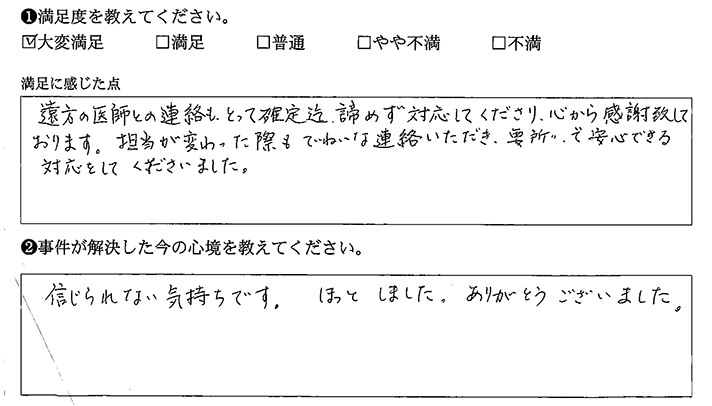 ❶満足度を教えてください。
☑大変満足 □満足 □普通 □やや不満 □不満
満足に感じた点
遠方の医師との連絡も、とって確定迄、諦めず対応してくださり、心から感謝致して
おります。担当が変わった際もていねいな連絡いただき、要所〃、で安心できる
対応をして くださいました。
❷事件が解決した今の心境を教えてください。
信じられない気持ちです。 ほっと しました。 ありがとう ございました。